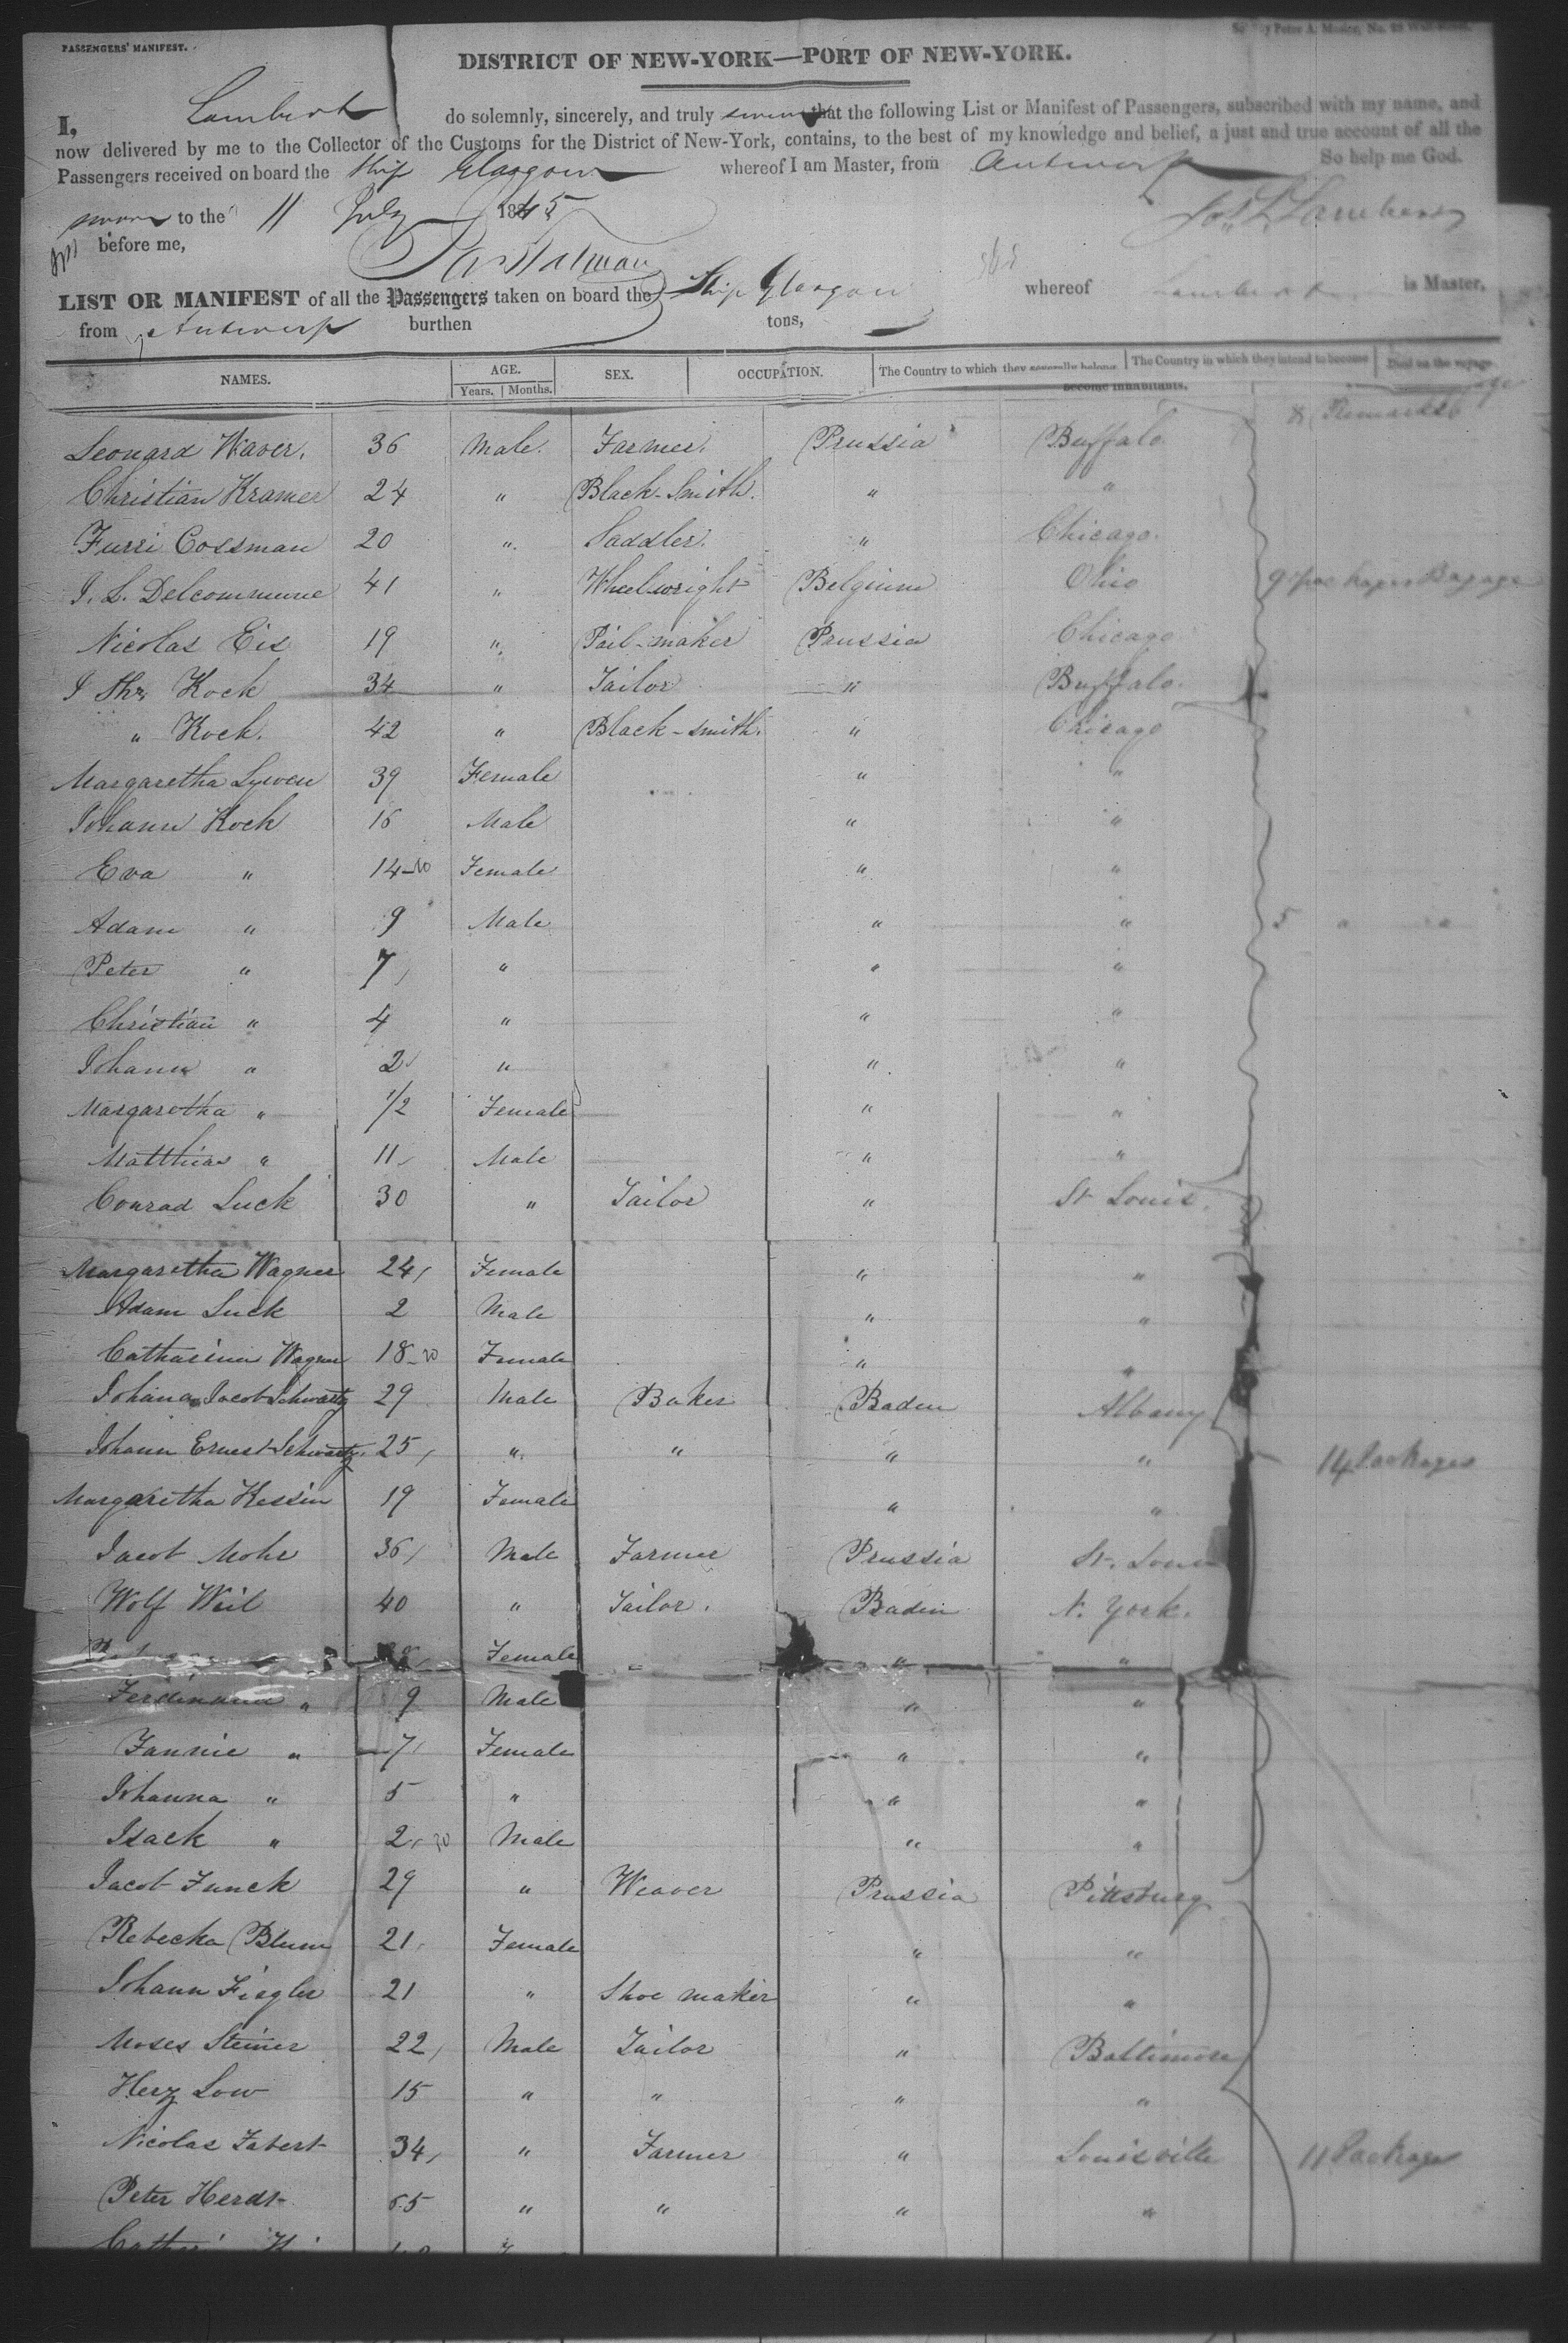 PASSENGERS' MANIFEST.
DISTRICT OF NEW-YORK—PORT OF NEW-YORK.
I, Lambert do solemnly, sincerely, and truly swear that the following List or Manifest of Passengers, subscribed with my name, and
now delivered by me to the Collector of the Customs for the District of New-York, contains, to the best of my knowledge and belief, a just and true account of all the
Passengers received on board the Ship Glasgow whereof I am Master, from Antwerp So help me God.
sworn to the 11 July 1845
before me,
LIST OR MANIFEST of all the Passengers taken on board the Ship Glasgow whereof is Master,
from Antwerp burthen tons,
NAMES. AGE. SEX. OCCUPATION. The Country to which they severally belong. The Country in which they intend to become Died on the voyage
Years. Months. become inhabitants.
Remarks
Leonard Waver. 36 Male. Farmer. Prussia Buffalo
Christian Kramer 24 " Black-Smith. " "
Furri Cossman 20 " Saddler. " Chicago.
I. L. Delcommune 41 " Wheelwright Belgium Ohio 9 packages Bagage
Nicolas Eis 19 " Pail-maker Prussia Chicago
I Kock 34 " Tailor " Buffalo.
" Kock. 42 " Black-smith. " Chicago
Margaretha Lywen 39 Female " "
Johann Kock 16 Male " "
Eva " 14 Female " "
Adam " 9 Male " " 5 " "
Peter " 7 " " "
Christian " 4 " " "
Johann " 2 " " "
Margaretha " 1/2 Female " "
Matthias " 11 Male " "
Conrad Luck 30 " Tailor " St Louis.
Margaretha Wagner 24 Female " "
Adam Luck 2 Male " "
Catharina Wagner 18 Female " "
Johann Jacob Schwartz 29 Male Baker Baden Albany
Johann Ernest Schwartz 25 " " " " 14 Packages
Margaretha Kessin 19 Female " "
Jacob Mohr 36 Male Farmer Prussia St. Louis
Wolf Weil 40 " Tailor. Baden N. York.
Female " "
Ferdinand " 9 Male " "
Fannie " 7 Female " "
Johanna " 5 " " "
Isack " 2 Male " "
Jacob Funck 29 " Weaver Prussia Pittsburg
Rebecka Blum 21 Female " "
Johann Fiegler 21 " Shoe maker " "
Moses Steiner 22 Male Tailor " Baltimore
Herz Low 15 " " " "
Nicolas Zabert 34 " Farmer " Louisville 11 Packages
Peter Herdt 65 " " " "